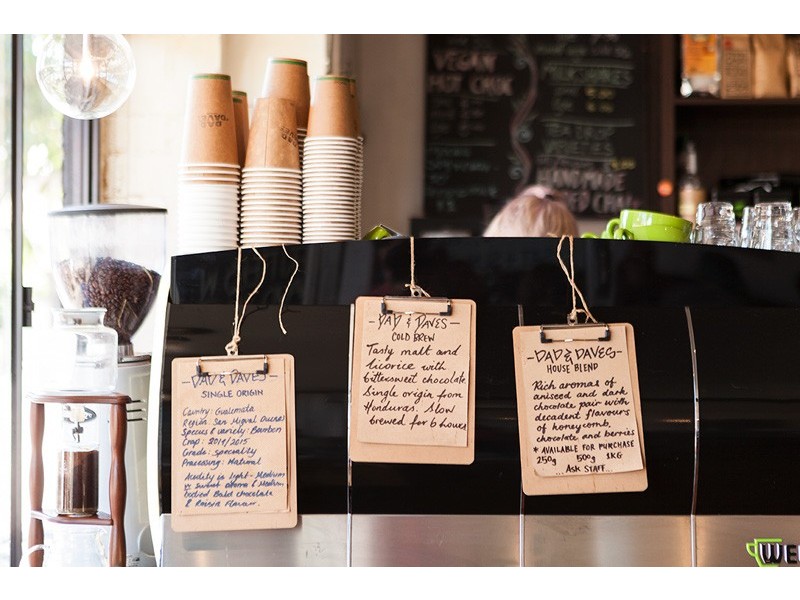 VEGAN
HOT CHOK
MILKSHAKES
HANDMADE
DAD & DAVES
SINGLE ORIGIN
Country: Guatemala
Region: San Miguel Duenas
Species & variety: Bourbon
Crop: 2014/2015
Grade: Speciality
Processing: Natural
Acidity is light - Medium
Sweet aroma & Medium
bodied Bold chocolate
& Raisin Flavour.
- DAD & DAVES -
COLD BREW
Tasty malt and
licorice with
bittersweet chocolate.
Single origin from
Honduras. Slow
brewed for 6 hours
- DAD & DAVES -
HOUSE BLEND
Rich aromas of
aniseed and dark
chocolate pair with
decadent flavours
of honeycomb,
chocolate and berries
* AVAILABLE FOR PURCHASE
250g 500g 1KG
... ASK STAFF...
WE